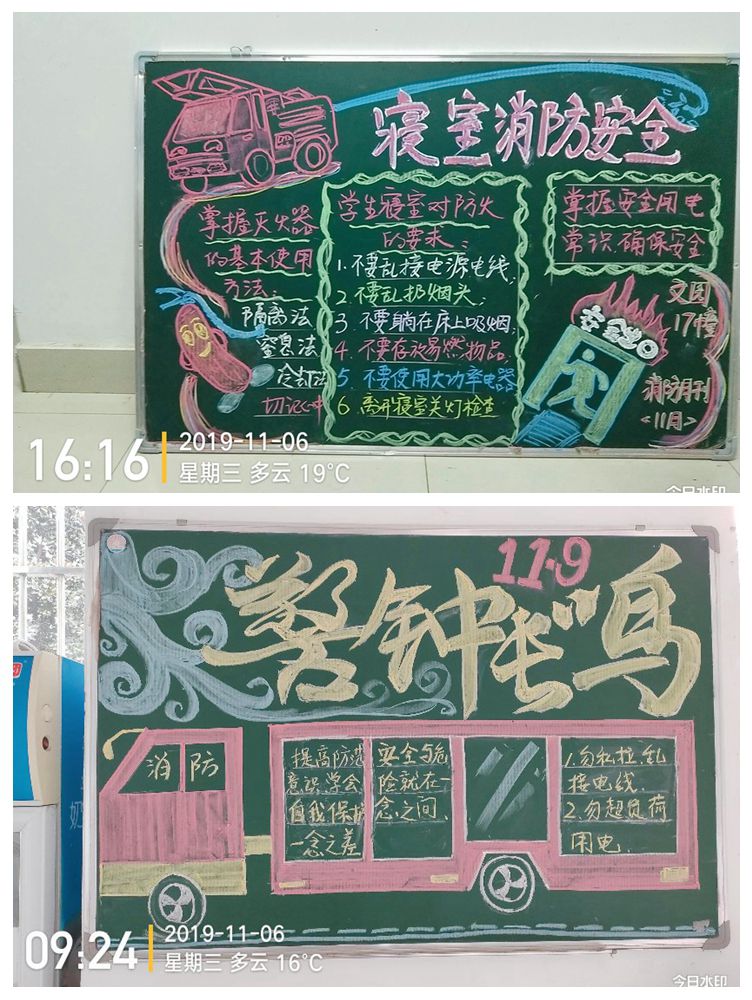 寝室消防安全
掌握灭火器
的基本使用
方法:
隔离法
窒息法
冷却法
切记心中
学生寝室对防火
的要求:
1.不要乱接电源电线.
2.不要乱扔烟头.
3.不要躺在床上吸烟.
4.不要存放易燃物品.
5.不要使用大功率电器
6.离开寝室关灯检查
掌握安全用电
常识.确保安全
文园
17幢
消防月刊
<11月>
16:16
2019-11-06
星期三 多云 19°C
今日水印
11.9
警钟长鸣
消防
提高防范
意识学会
自我保护
一念之差
安全与危
险就在一
念之间.
1.勿私拉.乱
接电线.
2.勿超负荷
用电.
09:24
2019-11-06
星期三 多云 16°C
今日水印